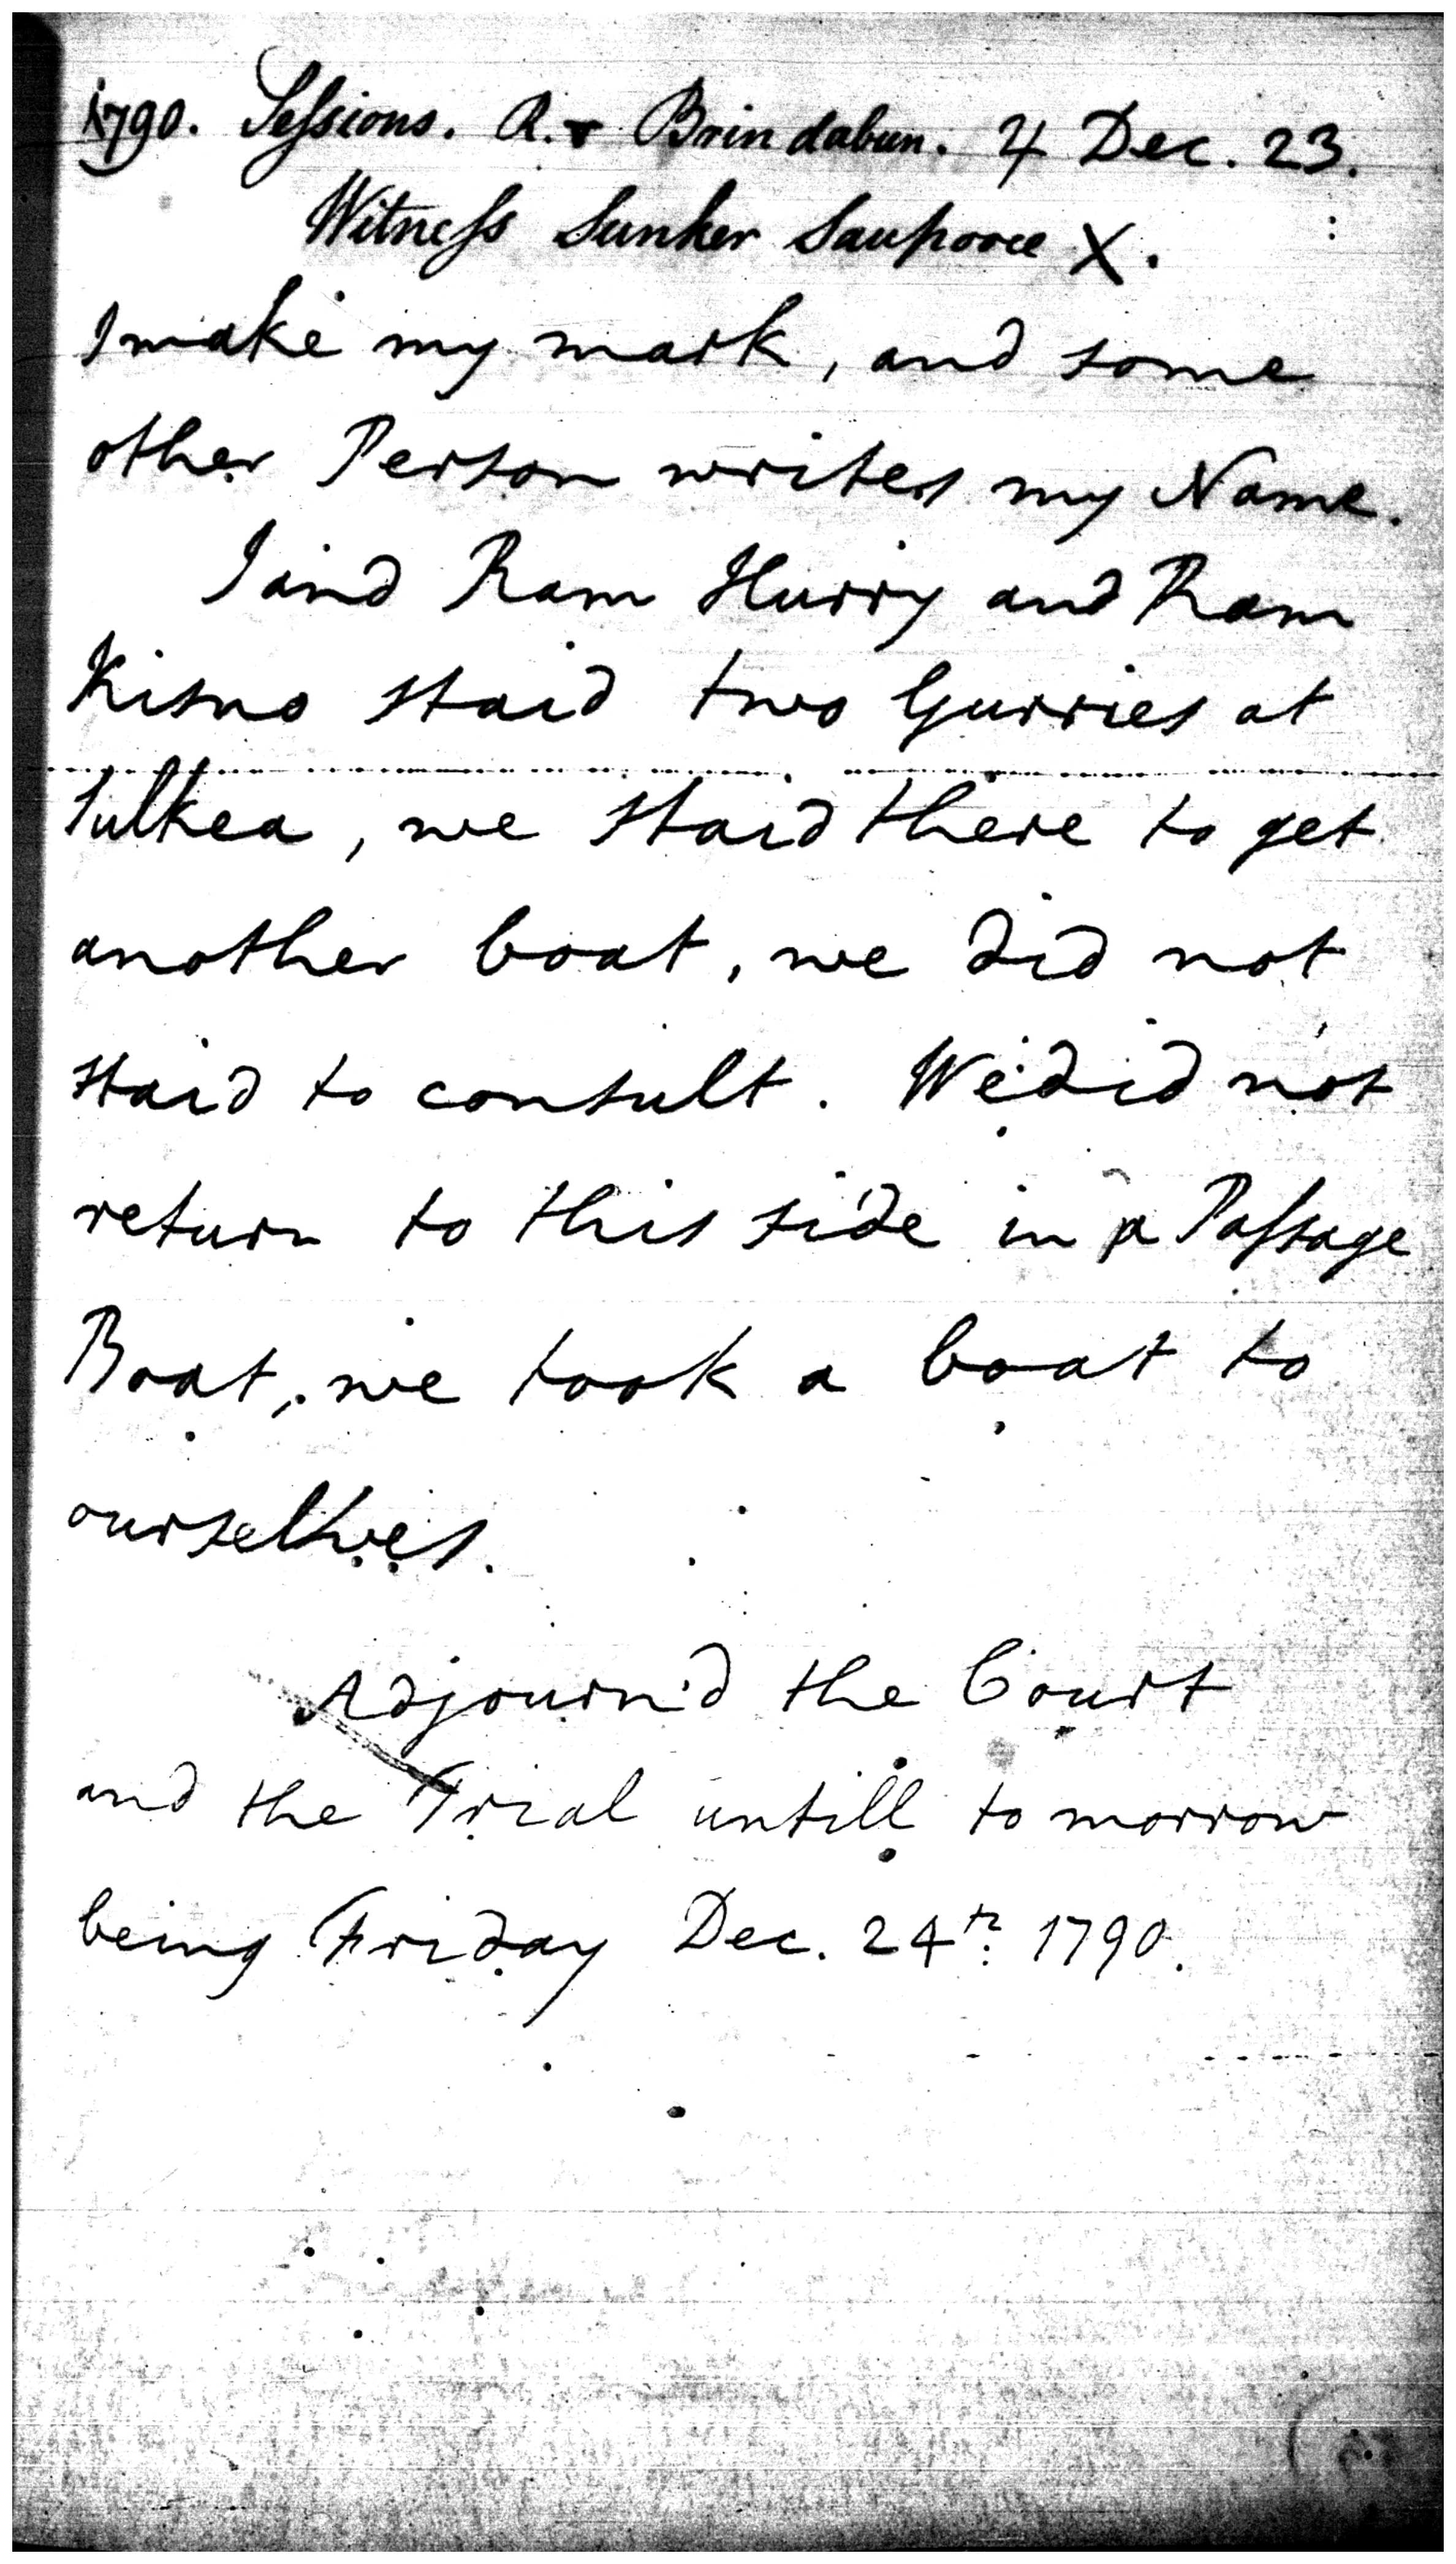 1790. Sessions. R. v Brindabun. 4 Dec. 23.
Witness Sunker Saupooree X.
I make my mark, and some
other Person writes my Name.
I and Ram Hurry and Ram
Kisno staid two Gurries at
Sulkea, we staid there to get
another boat, we did not
staid to consult. We did not
return to this side in a Passage
Boat, we took a boat to
ourselves.
Adjourn'd the Court
and the Trial untill to morrow
being Friday Dec. 24th 1790.